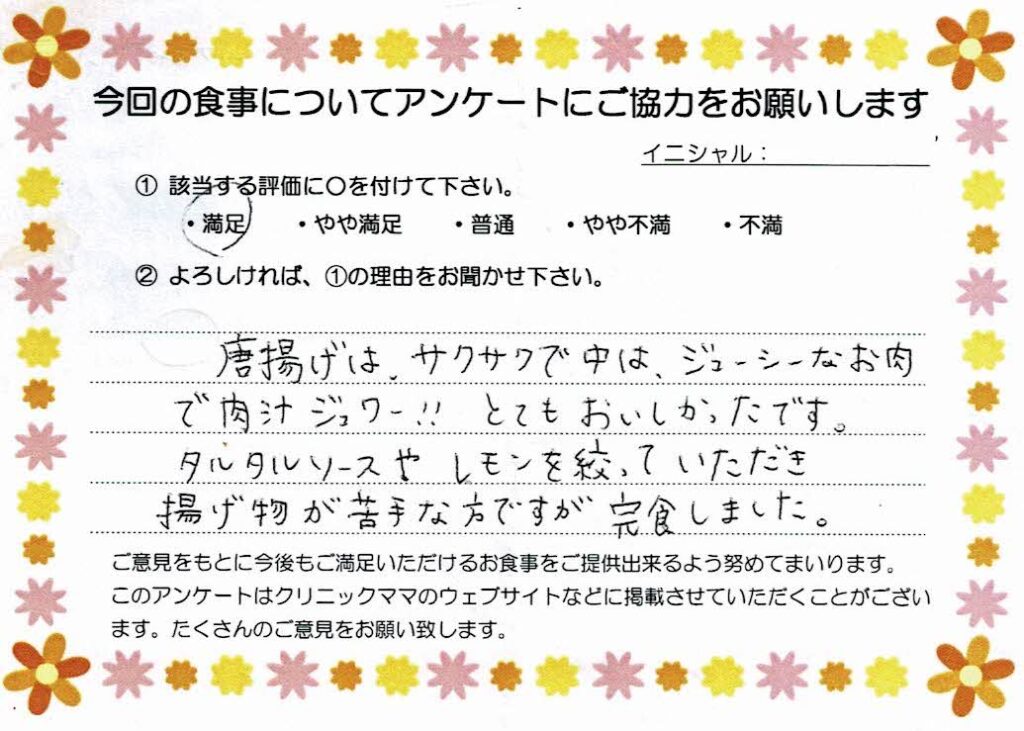 今回の食事についてアンケートにご協力をお願いします
イニシャル：
① 該当する評価に○を付けて下さい。
・満足 ・やや満足 ・普通 ・やや不満 ・不満
② よろしければ、①の理由をお聞かせ下さい。
唐揚げは、サクサクで中は、ジューシーなお肉
で肉汁ジュワー!! とてもおいしかったです。
タルタルソースやレモンを絞っていただき
揚げ物が苦手な方ですが完食しました。
ご意見をもとに今後もご満足いただけるお食事をご提供出来るよう努めてまいります。
このアンケートはクリニックママのウェブサイトなどに掲載させていただくことがござい
ます。たくさんのご意見をお願い致します。